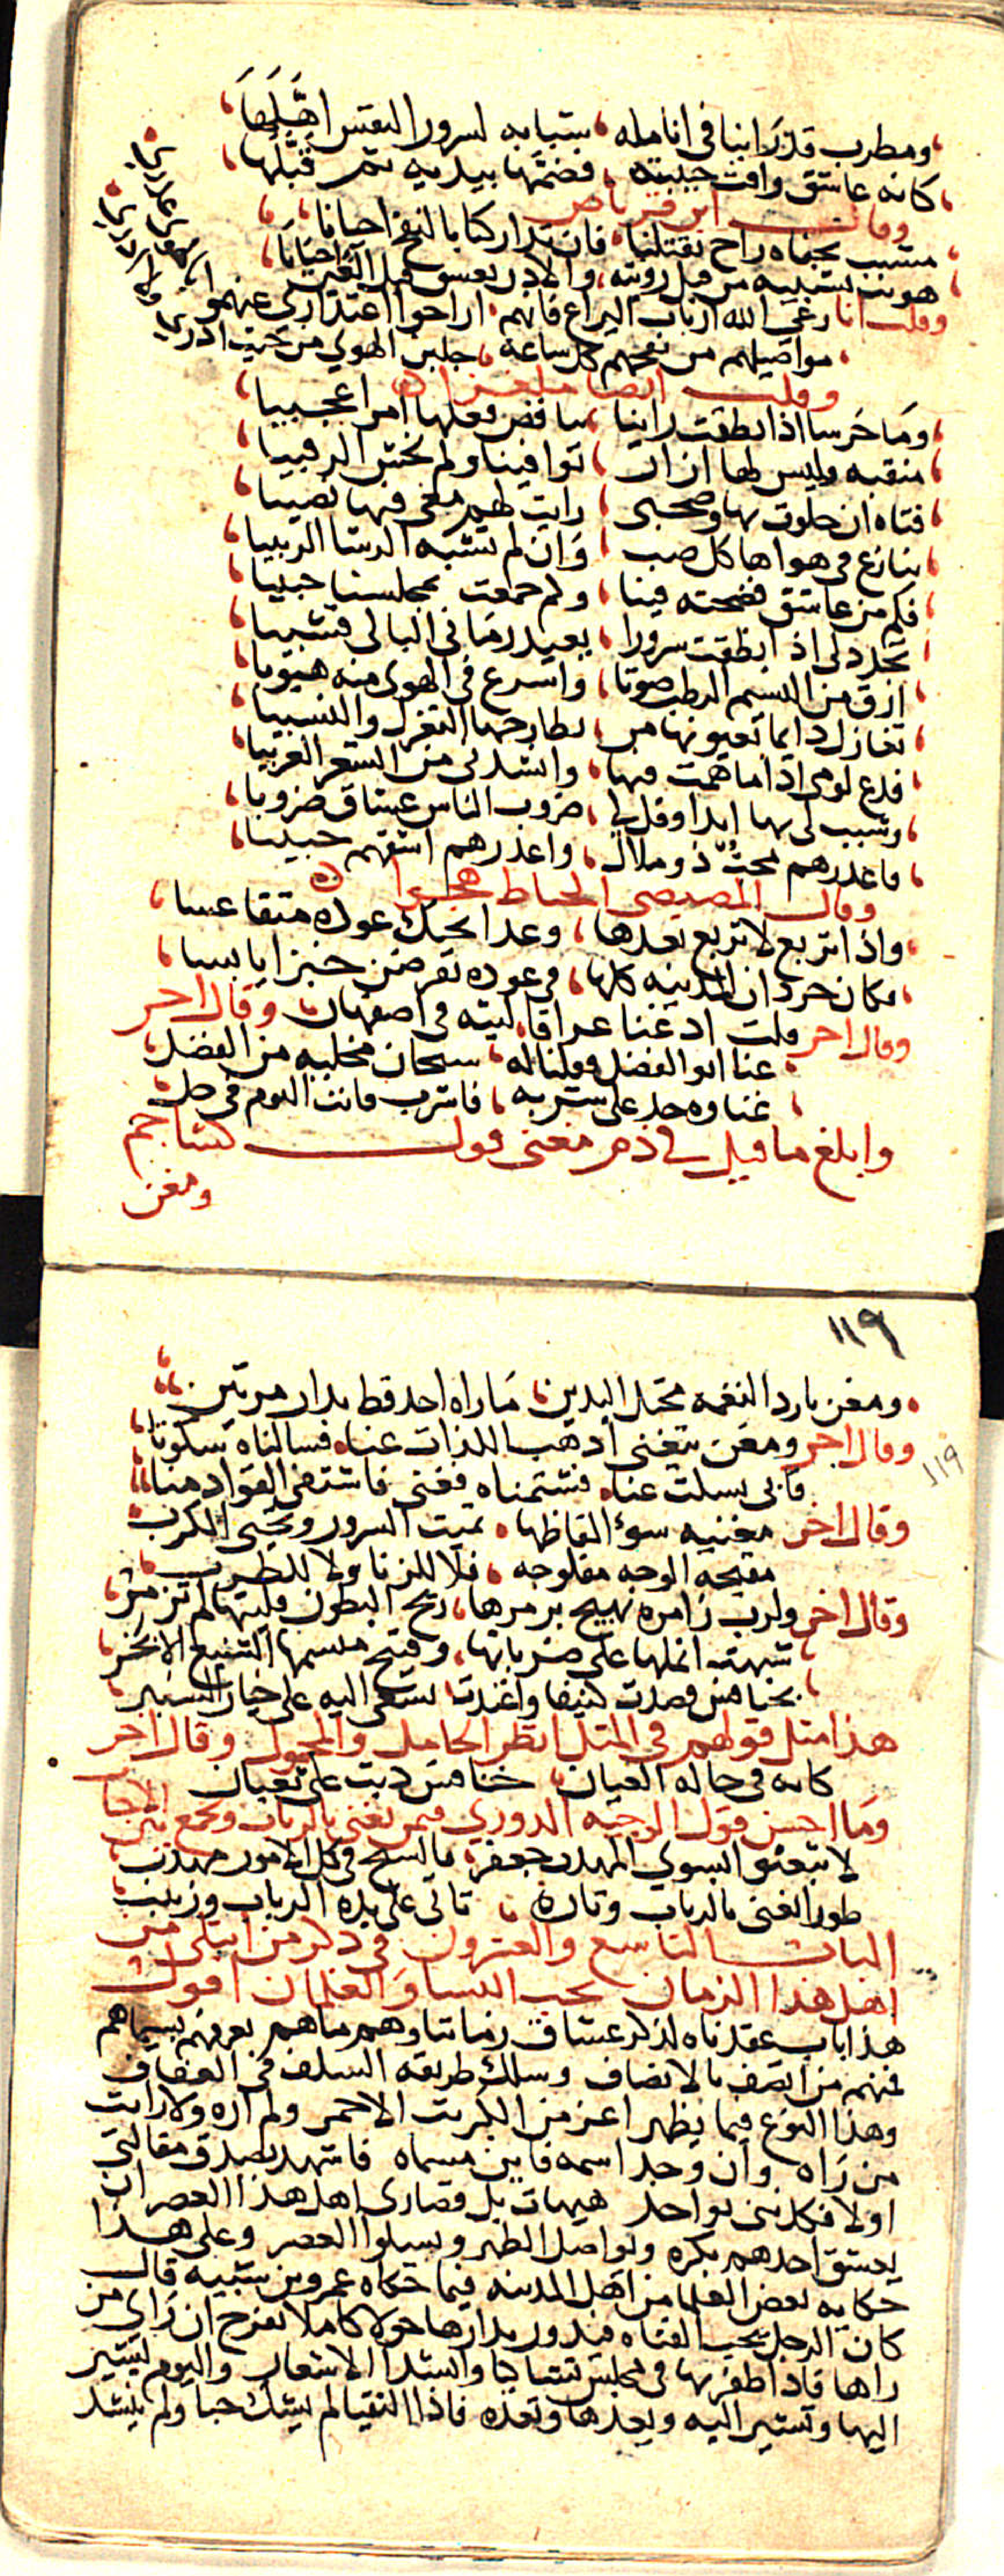 ومطرب قد راينا في انامله شبابه لسرور النفس اهلها
كانه عاشق وافت حبيبته فضمها بيديه ثم قبلها
وقال ابن قرناص
مشبب بجفاه راح يقتلنا فان تدارك بالنفخ احيانا
هويت تشبيبه من قبل رويته والاذن تعشق قبل العين احيانا
وقلت انا رعى الله ارباب اليراع فانهم اراحوا اعتذاري عنهمو
مواصيلهم من نفخهم كل ساعه جلبن الهوى من حيث ادري
وقلت ايضا ملغزا
وما خرسا اذا نطقت راينا يناقض فعلها امرا عجيبا
منقبه وليس لها ازار توافينا ولم تخش الرقيبا
فتاه ان خلوت بها وصحبي رايت لهم معي فيها نصيبا
ينازع في هواها كل صب وان لم تشبه الرشا الربيبا
فكم من عاشق فضحته فينا وكم جمعت بمجلسنا حبيبا
تجدد لي اذا نطقت سرورا يعيد زمانى البالى قشيبا
ارق من النسيم الرطب صوتا واسرع في الهوى منه هبوبا
تغازل دايما بعيونها من يطارحها التغزل والنسيبا
فدع لومى اذا ما همت فيها وانشد لي من الشعر الغريبا
وشبب لي بها ابدا وقل لي ضروب الناس عشاق ضروبا
فاعذرهم محب ذو ملال واعذرهم اشفهم حبيبا
وقال المصيصى الخياط هجوا
واذا تربع لا تربع بعدها وغدا يحرك عوده متقاعسا
فكان جرذان المدينه كلها في عوده تقرضن خبزا يابسا
وقال اخر قلت اذ غنا عراقا ليته في اصفهان وقال اخر
غنا ابو الفضل فقلنا له سبحان مخليه من الفضل
غناوه حد على شربه فاشرب فانت اليوم في حل
وابلغ ما قيل في ذم مغنى قول كشاجم
ومغن
١١٩
ومغن بارد النغمه مختل اليدين ما راه احد قط بدار مرتين
وقال اخر ومغن يتغنى اذهب اللذات عنا فسالناه سكوتا
١١٩
فابى يسكت عنا فشتمناه فغنى فاشتفى الفواد منا
وقال اخر مغنيه سوء الفاظها تميت السرور وتحيى الكرب
مقبحه الوجه مفلوجه فلا للزنا ولا للطرب
وقال اخر ولرب زامره تهيج بزمرها ريح البطون فليتها لم تزمر
شبهت انملها على ضرباتها وقبح مبسمها الشنيع الابخر
بخنافس قصدت كنيفا واغتدت تسعى اليه على خيار الشنبر
هذا مثل قولهم في المثل انظر الحامل والمحمول وقال اخر
كانه في حاله العيان خنافس دبت على ثعبان
وما احسن قول الوجيه الدوري فيمن يغنى بالرباب ويجمع بين
لا تبعثوا بسوى المهذب جعفر فالشيخ في كل الامور مهذب
طورا يغنى بالرباب وتاره تاتى على يده الرباب وزينب
الباب التاسع والعشرون في ذكر من ابتلى من
اهل هذا الزمان بحب النسا والغلمان اقول
هذا باب عقدناه لذكر عشاق زماننا وهم ما هم يعرفهم بسيماهم
فمنهم من اتصف بالانصاف وسلك طريقه السلف في العفاف
وهذا النوع فيما يظهر اعز من الكبريت الاحمر ولم اره ولا رايت
من راه وان وجد اسمه فاين مسماه فاشهد بصدق مقالتي
اولا فكذبنى بواحد هيهات بل قصارى اهل هذا العصر ان
يعشق احدهم بكره ويواصل الظهر ويسلوا العصر وعلى هذا
حكايه بعض العلما من اهل المدينه فيما حكاه عمرو بن شيبه قال
كان الرجل يحب الفتاه فيدور بدارها حولا كاملا يفرح ان راى من
راها فاذا ظفر بها في مجلس تشاكيا وانشدا الاشعار واليوم يشير
اليها وتشير اليه ويعدها وتعده فاذا التقيا لم يشك حبا ولم ينشد